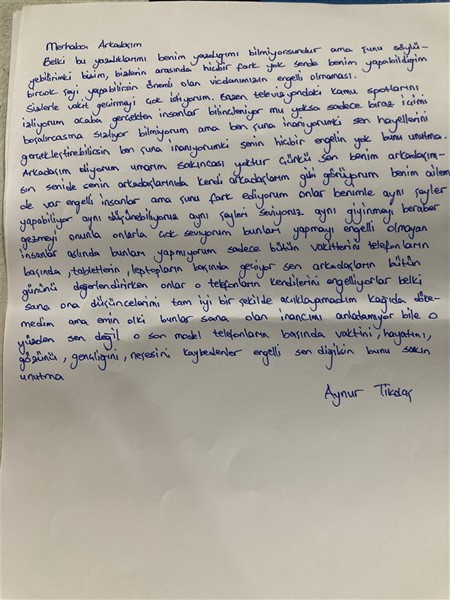 Merhaba Arkadaşım
Belki bu yazdıklarımı benim yazdığımı bilmiyorsundur ama şunu söylü-
yebilirimki bizim, bizlerin arasında hiçbir fark yok sende benim yapabildiğim
birçok şeyi yapabilirsin önemli olan vicdanımızın engelli olmaması.
Sizlerle vakit geçirmeyi çok istiyorum. Bazen televizyondaki kamu spotlarını
izliyorum acaba gerçekten insanlar bilinçleniyor mu yoksa sadece biraz içimi
boşalırcasına sızlıyor bilmiyorum ama ben şuna inanıyorumki sen hayellerini
gerçekleştirebilirsin ben şuna inanıyorumki senin hiçbir engelin yok bunu unutma.
Arkadaşım diyorum umarım sakıncası yoktur çünkü sen benim arkadaşım-
sın senide senin arkadaşlarınıda kendi arkadaşlarım gibi görüyorum benim ailem
de var engelli insanlar ama şunu fark ediyorum onlar benimle aynı şeyler
yapabiliyor aynı düşünebiliyoruz aynı şeyleri seviyoruz aynı giyinmeyi beraber
gezmeyi onunla onlarla çok seviyorum bunları yapmayı engelli olmayan
insanlar aslında bunları yapmıyorum sadece bütün vakitlerini telefonların
başında, tabletlerin, leptopların başında geçiyor sen arkadaşların bütün
gününü değerlendirirken onlar o telefonların kendilerini engelliyorlar belki
sana ona düşüncelerimi tam iyi bir şekilde açıklayamadım kağıda döke-
medim ama emin olki bunlar sana olan inancımı anlatamıyor bile o
yüzden sen değil o son model telefonların başında vaktini, hayatını,
gözünü, gençliğini, neşesini kaybedenler engelli sen diğilsin bunu sakın
unutma
Aynur